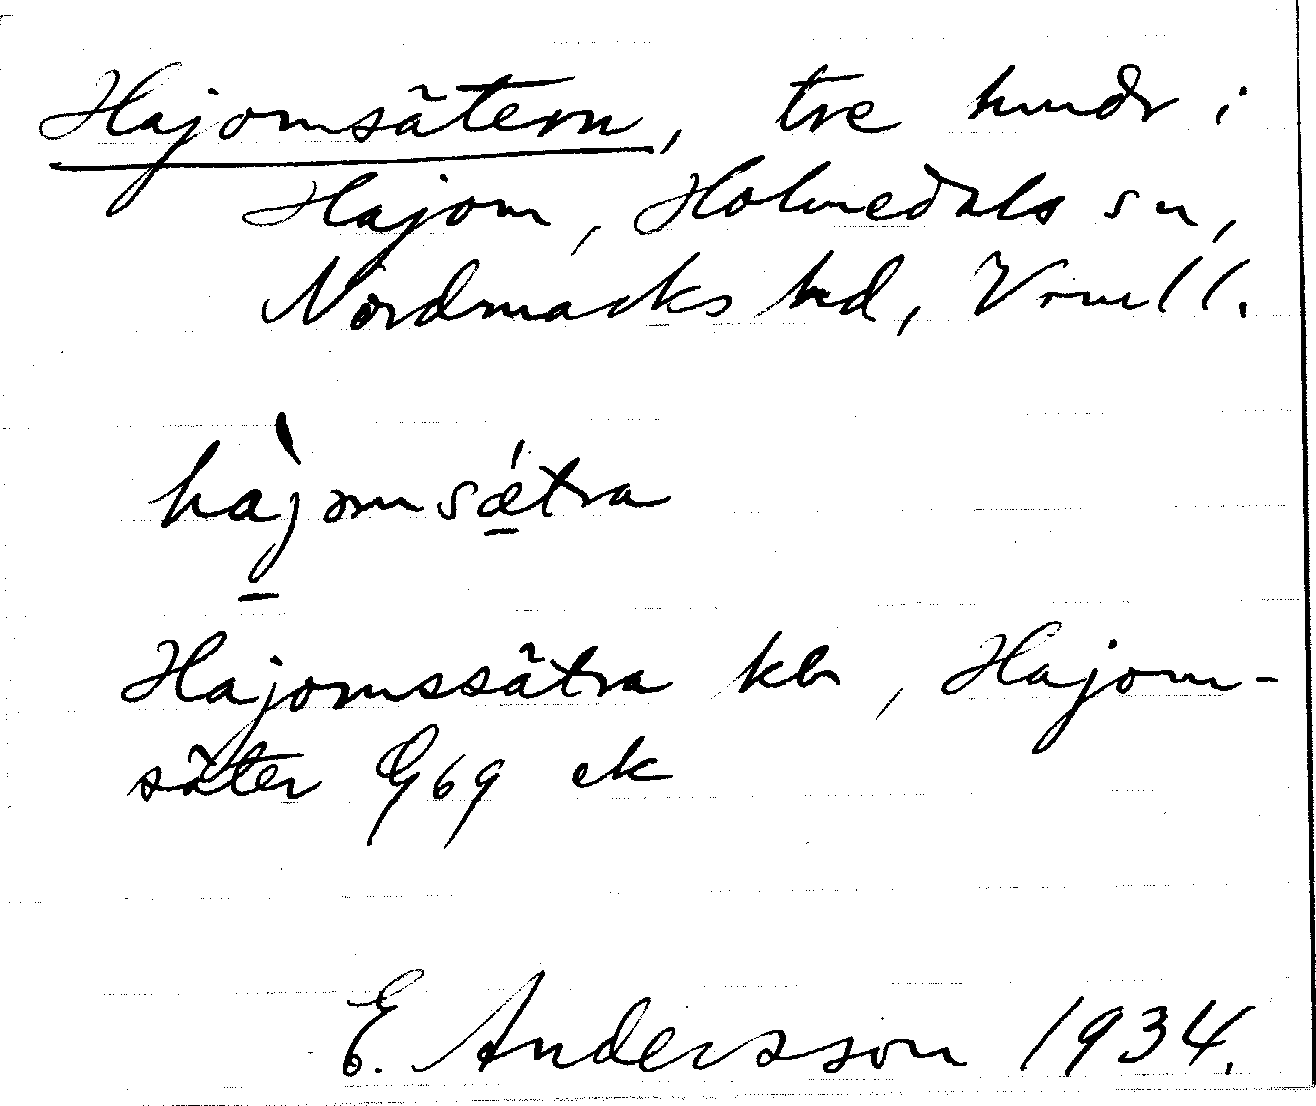 Hajomsätern, tre hmdr i
Hajom, Holmedals sn,
Nordmarks hd, Vrml l.
hàjomsǽtra
Hajomssätra kb, Hajom-
säter G69 ek
E. Andersson 1934.